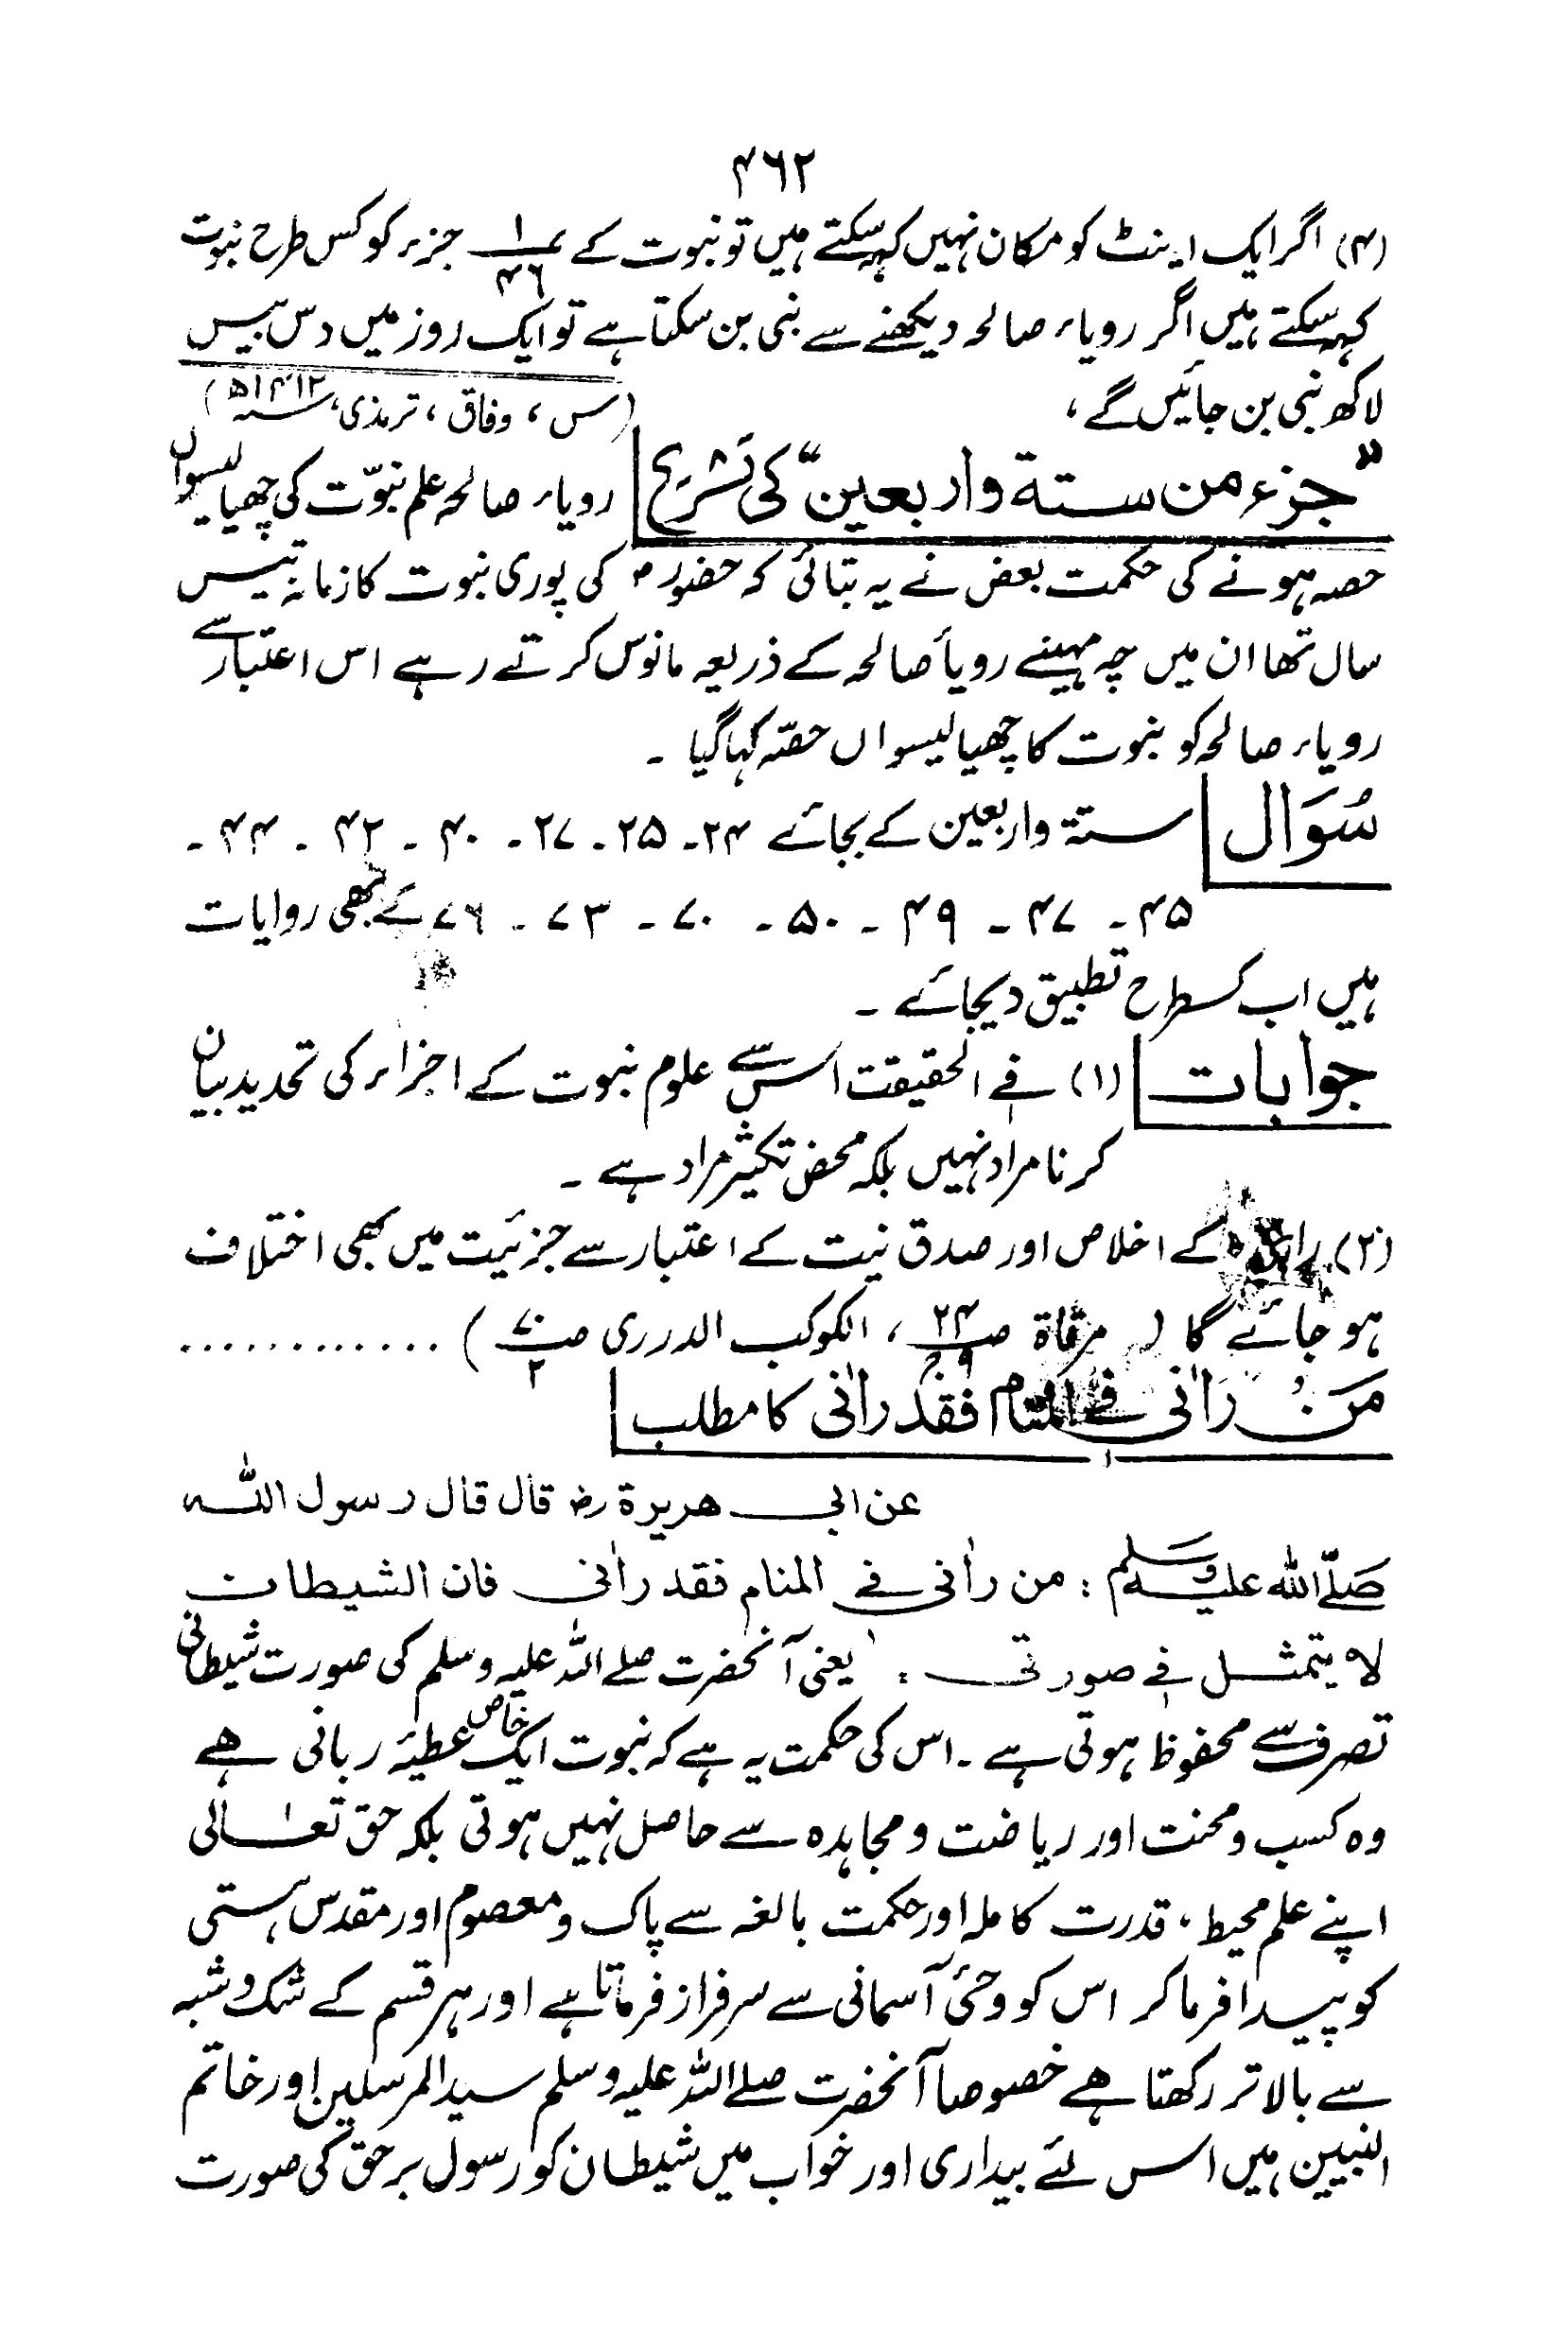 ۴۶۲
(۴) اگر ایک اینٹ کو مکان نہیں کہہ سکتے ہیں تو نبوت کے ۱/۴۶ جزء کو کس طرح نبوت
کہہ سکتے ہیں اگر رویاء صالحہ دیکھنے سے نبی بن سکتا ہے تو ایک روز میں دس بیس
لاکھ نبی بن جائیں گے، (س، وفاق، ترمذی، سنہ ۱۴۱۲ھ)
”جزء من ستة واربعین“ کی تشریح رویاء صالحہ علم نبوّت کی چھیالیسواں
حصہ ہونے کی حکمت بعض نے یہ بتائی کہ حضورؐ کی پوری نبوت کا زمانہ تیس
سال تھا ان میں چہ مہینے رویأ صالحہ کے ذریعہ مانوس کرتے رہے اس اعتبار سے
رویاء صالحہ کو نبوت کا چھیالیسواں حصّہ کہا گیا ۔
سُوَال ستة واربعین کے بجائے ۲۴۔ ۲۵۔ ۲۷۔ ۴۰۔ ۴۲۔ ۴۴۔
۴۵۔ ۴۷۔ ۴۹۔ ۵۰۔ ۷۰۔ ۷۳۔ ۷۶ کے بھی روایات
ہیں اب کسطرح تطبیق دیجائے ۔
جوابات (۱) فے الحقیقت اس سے علوم نبوت کے اجزاء کی تحدید بیان
کرنا مراد نہیں بلکہ محض تکثیر مراد ہے ۔
(۲) کے اخلاص اور صدق نیت کے اعتبار سے جزئیت میں بھی اختلاف
ہو جائے گا ( مرقاۃ صـ ۲۴/ج۹ ، الکوکب الدرری صـ ۷۰/۲ ) ............
مَنْ رَاٰنی فے المنام فقد راٰنی کا مطلب
عن ابی هریرة رض قال قال رسول اللہ
صلّے اللہ علیہ وسلم : من راٰنی فے المنام فقد راٰنی فان الشیطان
لا یتمثل فے صورتی : یعنی آنحضرت صلے اللہ علیہ وسلم کی صورت شیطانی
تصرف سے محفوظ ہوتی ہے ۔ اس کی حکمت یہ ہے کہ نبوت ایک خاص عطیۂ ربانی ہے
وہ کسب ومحنت اور ریاضت ومجاہدہ سے حاصل نہیں ہوتی بلکہ حق تعالٰی
اپنے علم محیط، قدرت کاملہ اور حکمت بالغہ سے پاک ومعصوم اور مقدس ہستی
کو پیدا فرما کر اس کو وحئ آسمانی سے سرفراز فرماتا ہے اور ہر قسم کے شک وشبہ
سے بالاتر رکھتا ہے خصوصا آنحضرت صلے اللہ علیہ وسلم سید المرسلین اور خاتم
النبیین ہیں اس لئے بیداری اور خواب میں شیطان کو رسول برحق کی صورت